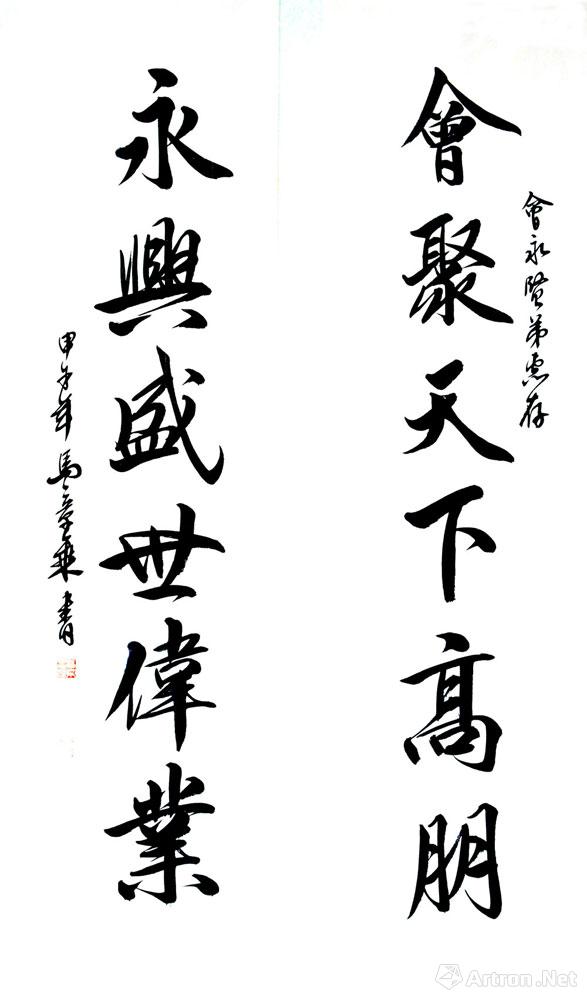 會永賢弟惠存
會聚天下高朋
永興盛世偉業
甲午年馬章乘書
Artron.Net